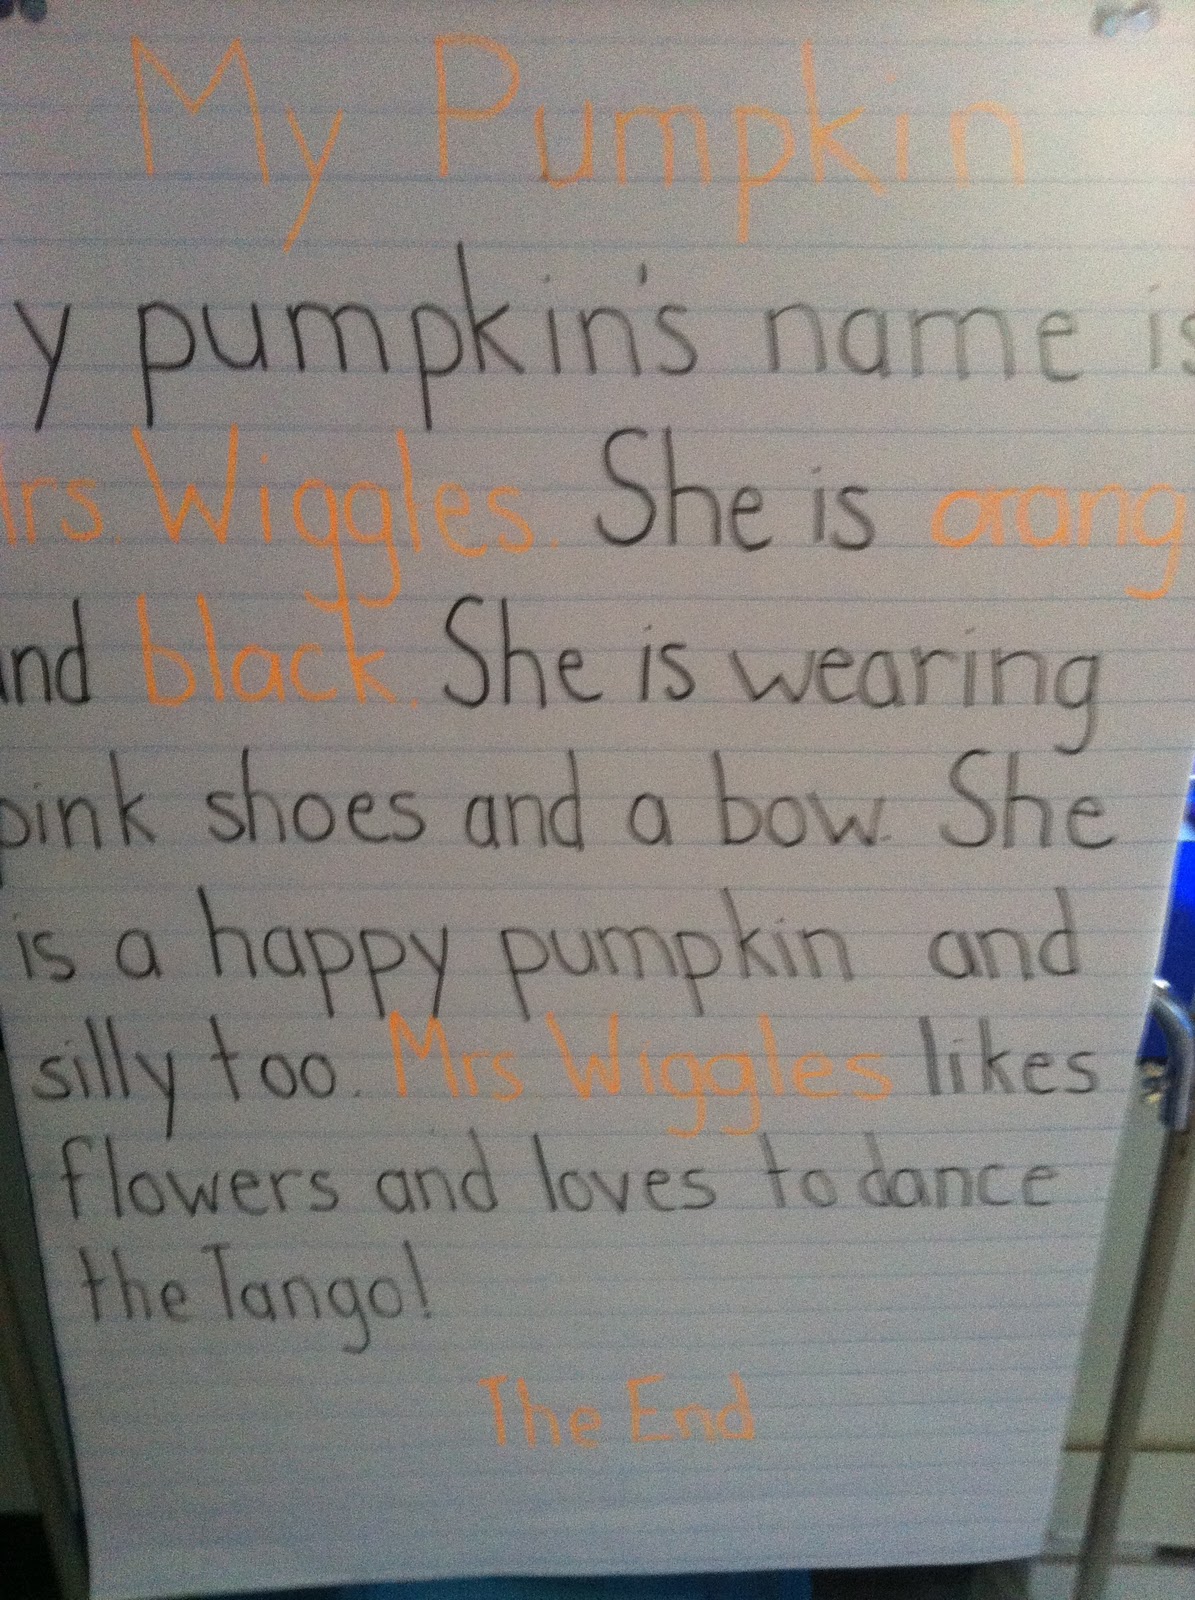 My Pumpkin
y pumpkin's name is
Mrs. Wiggles. She is orang
and black. She is wearing
pink shoes and a bow. She
is a happy pumpkin and
silly too. Mrs Wiggles likes
flowers and loves to dance
the Tango!
The End